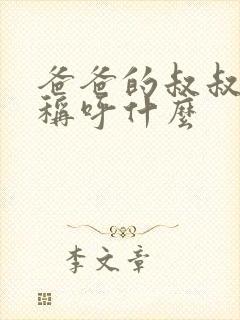 爸爸的叔叔
稱呼什麼
李文章